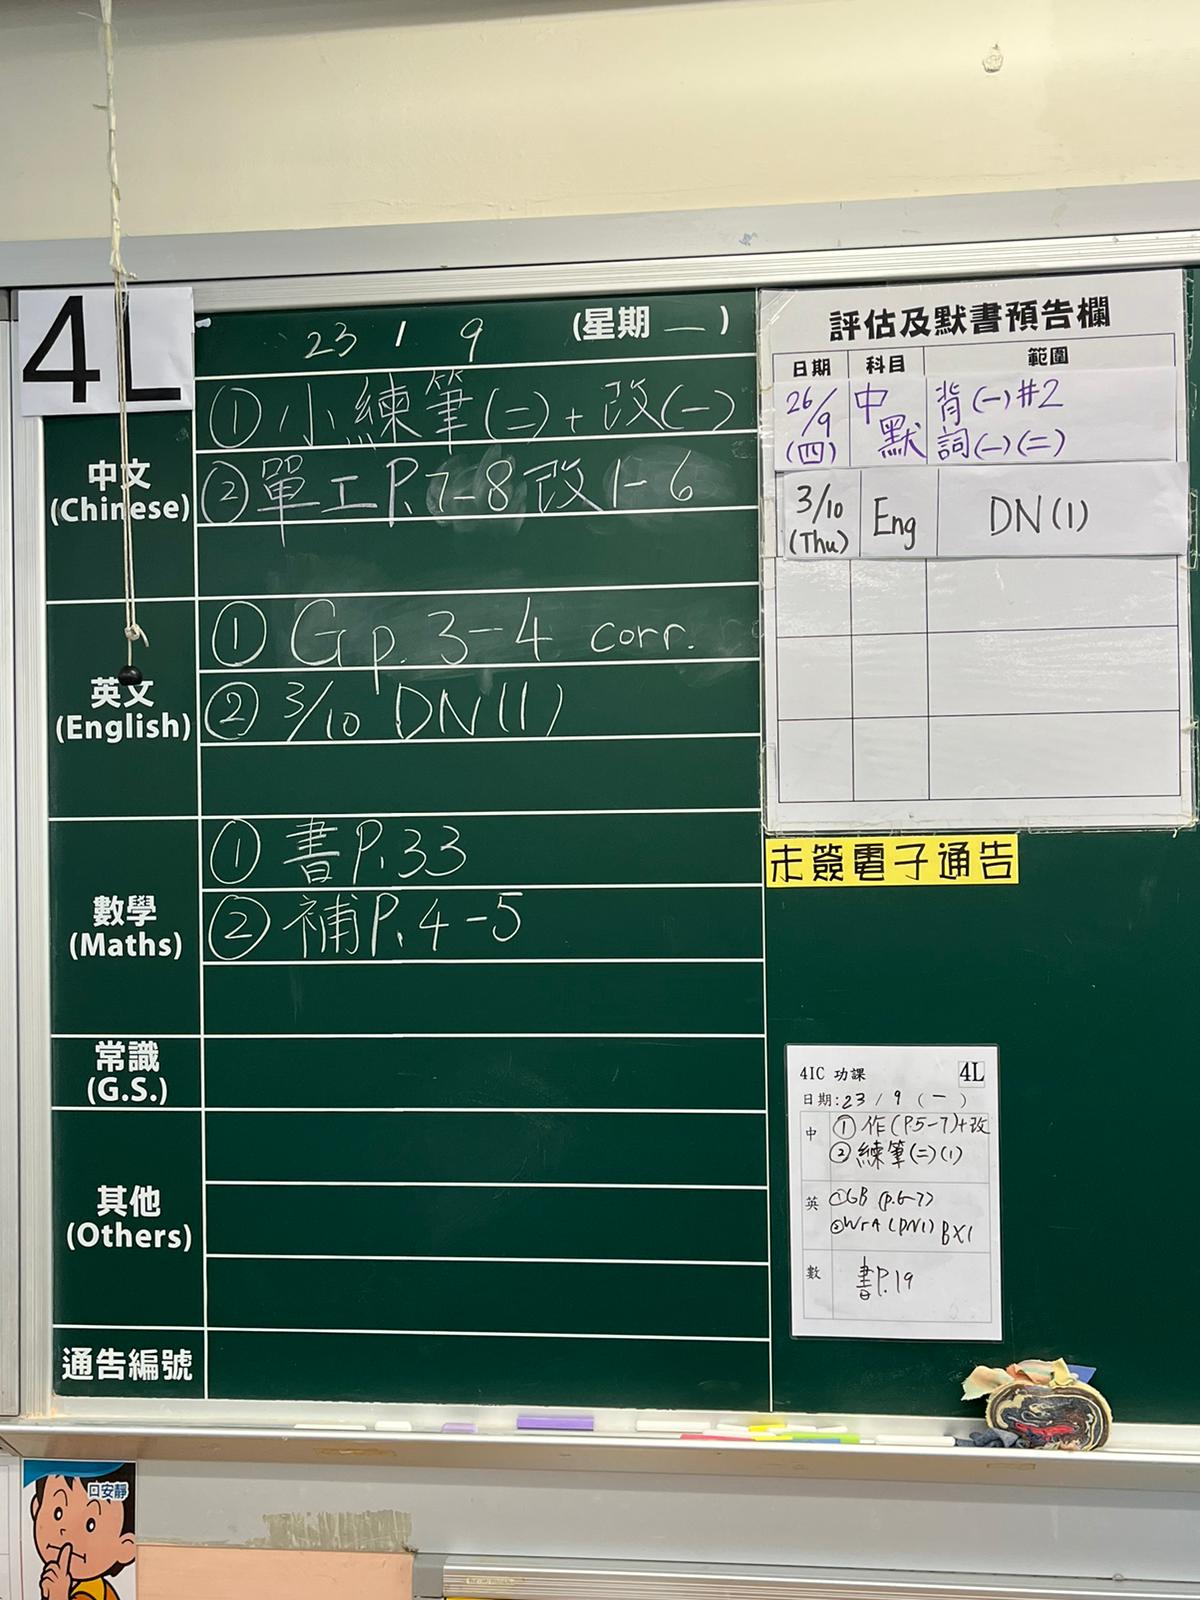 4L
23 / 9 (星期 一 )
中文
(Chinese)
① 小練筆(二)+ 改(一)
② 單工P.7-8 改1-6
英文
(English)
① G p. 3-4 corr.
② 3/10 DN(1)
數學
(Maths)
① 書P.33
② 補P.4-5
常識
(G.S.)
其他
(Others)
通告編號
評估及默書預告欄
日期 科目 範圍
26/9 (四) 中默 背(一)#2
詞(一)(二)
3/10 (Thu) Eng DN(1)
未簽電子通告
4IC 功課 4L
日期:23 / 9 ( 一 )
中 ① 作(P.5-7)+改
② 練筆(二)(1)
英 ①GB (p.6-7)
②WrA (DN1) BX1
數 書P.19
口安靜